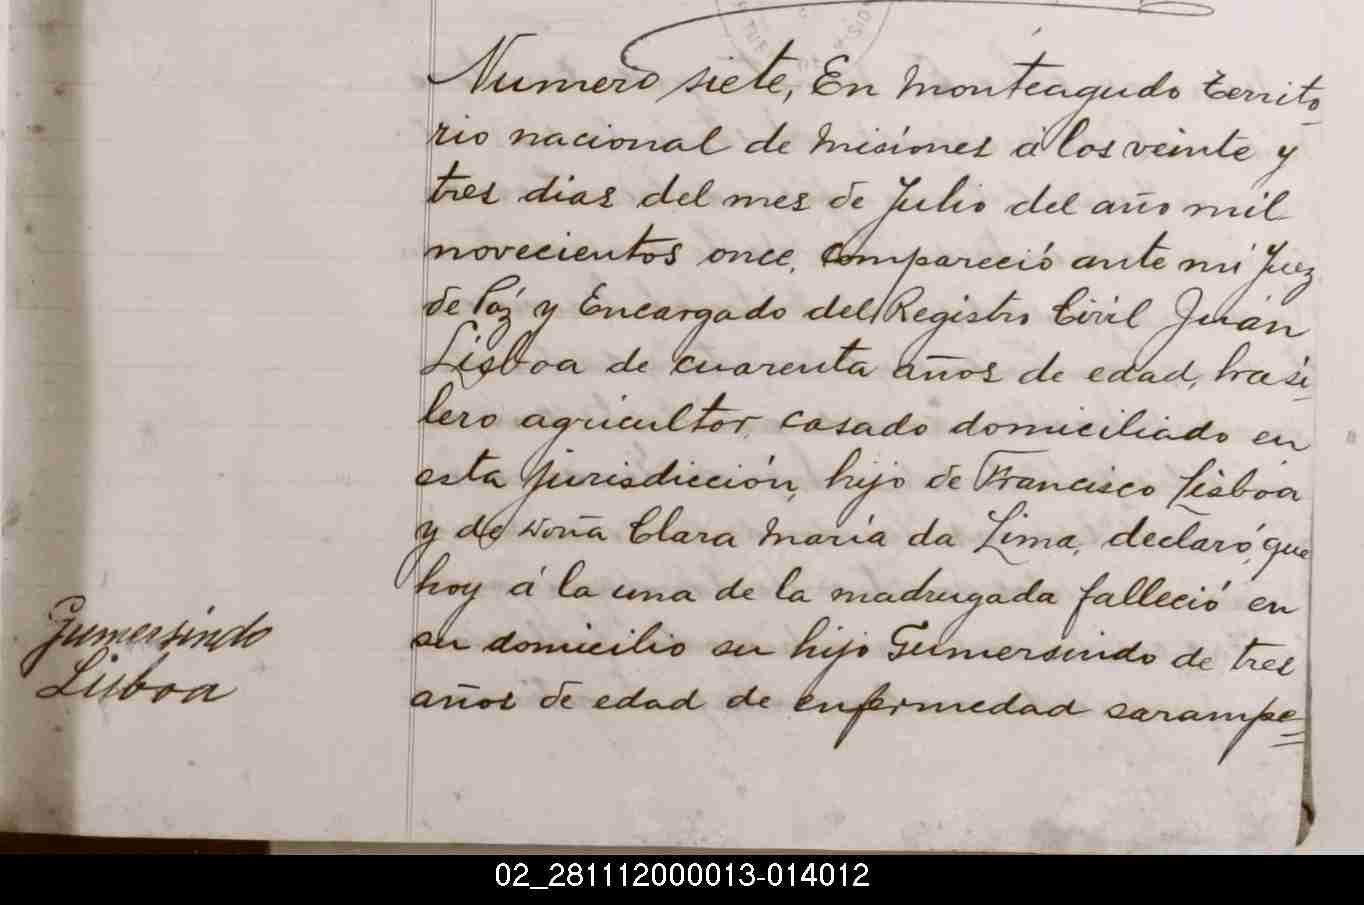 Numero siete, En Monteagudo territo-
rio nacional de Misiones á los veinte y
tres dias del mes de Julio del año mil
novecientos once, compareció ante mi Juez
de Páz y Encargado del Registro Civil Juán
Lisboa de cuarenta años de edad, brasi-
lero agricultor, casado domiciliado en
esta jurisdicción, hijo de Francisco Lisbôa
y de Doña Clara María da Lima, declaró, que
hoy á la una de la madrugada falleció en
su domicilio su hijo Gumersindo de tres
años de edad de enfermedad sarampe=
Gumersindo
Lisboa
02_281112000013-014012